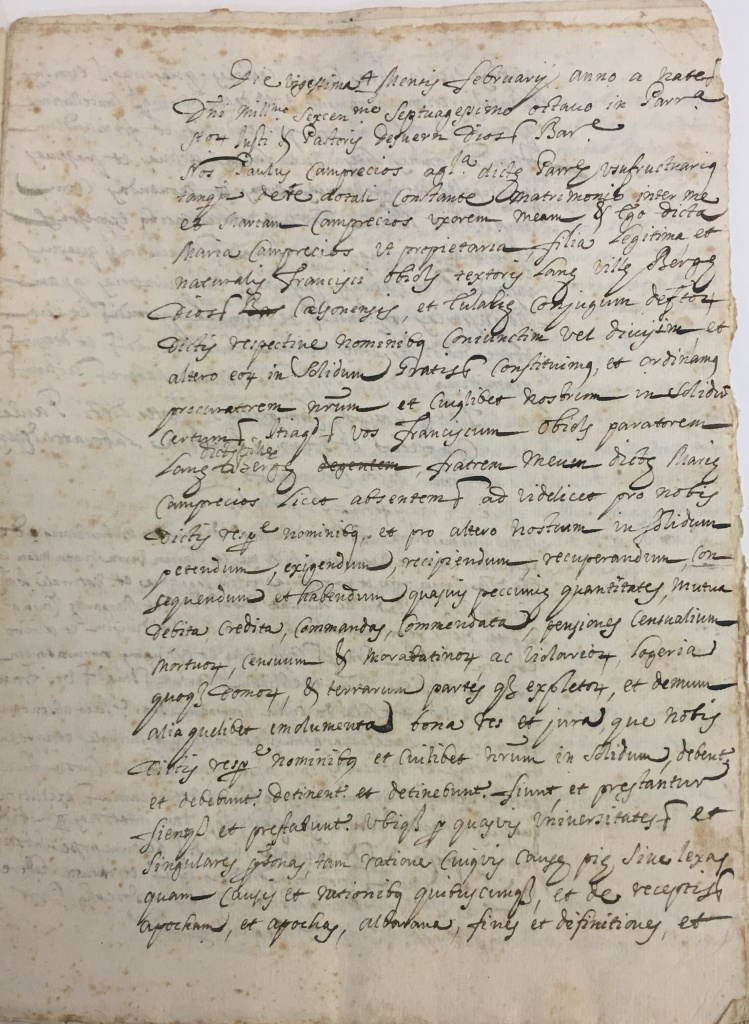 Die vigessima 4 Mensis februarij anno a nate
Dni Millmo sexcenmo septuagesimo octavo in Parra
Justi & Pastoris Dios Bare
Nos Paulus Camprecios dicte Parre Vsufructuariq
dotali Constante Matrimonio inter me
et Mariam Camprecios vxorem meam & Ego dicta
Maria Camprecios vt proprietaria, filia Legitima et
naturalis Francisci Obiols textoris Lanę Villę Bergę
Dios Cælsonensis, et Eulalię Conjugum
Dictis respective nominibq Coniunctim vel divisim et
altero in Solidum Gratis Constituimq, et ordinamq
procuratorem nrum et Cuiglibet nostrum in Solidū
Certum Itaq vos Franciscum Obiols paratorem
Lanę dictę Villę Bergę degentem, fratrem Meum dictę Marię
Camprecios Licet absentem ad videlicet pro nobis
Dictis respe nominibq et pro altero nostrum in solidum
petendum, exigendum, recipiendum, recuperandum, Con
sequendum et habendum quasvis peccunię quantitates, Mutua
Debita Credita, Commandas, Commendata, pensiones Censualium
Mortuoꝝ, Censuum & Morabatinoꝝ ac Violarioꝝ, Logeria
quoqꝫ Domoꝝ, & terrarum partes qꝫ expletoꝝ, et demum
alia quelibet emolumenta bona res et jura que nobis
Dictis respe nominibq et Cuilibet nrum in Solidum, debent
et debebunt detinent et detinebunt fiunt et prestantur
fientqꝫ et prestabunt Vbiqꝫ p quasvis Vniversitates et
Singulares psonas, tam ratione Cuiqvis Causę pię sive lexas
quam Causis et rationibq quibuscunqꝫ, et de receptis
apocham, et apochas, albarana, fines et definitiones, et